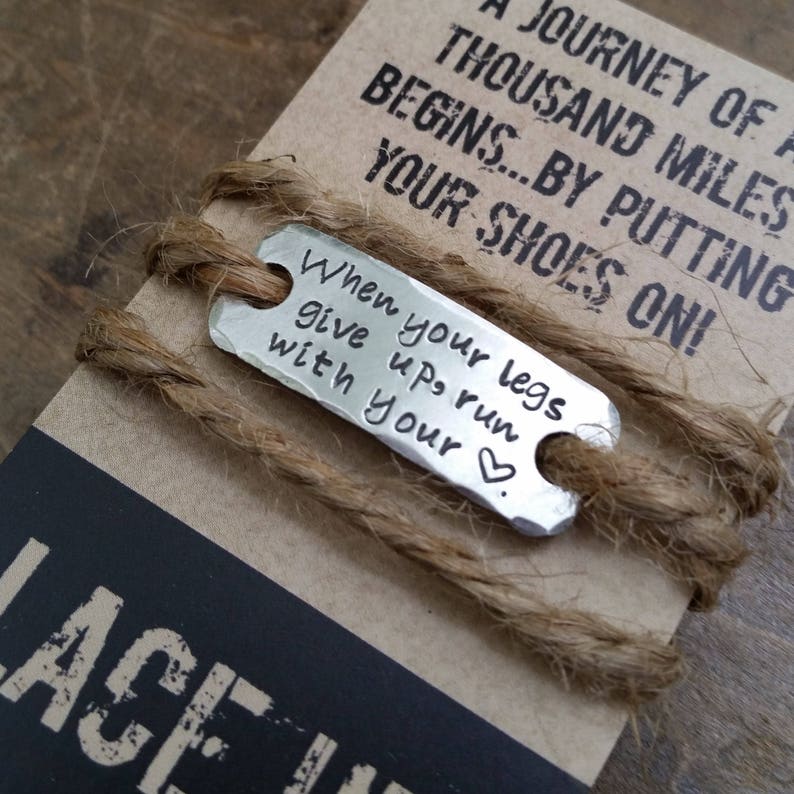 A JOURNEY OF A
THOUSAND MILES
BEGINS...BY PUTTING
YOUR SHOES ON!
When your legs
give up, run
with your ♡.
LACE